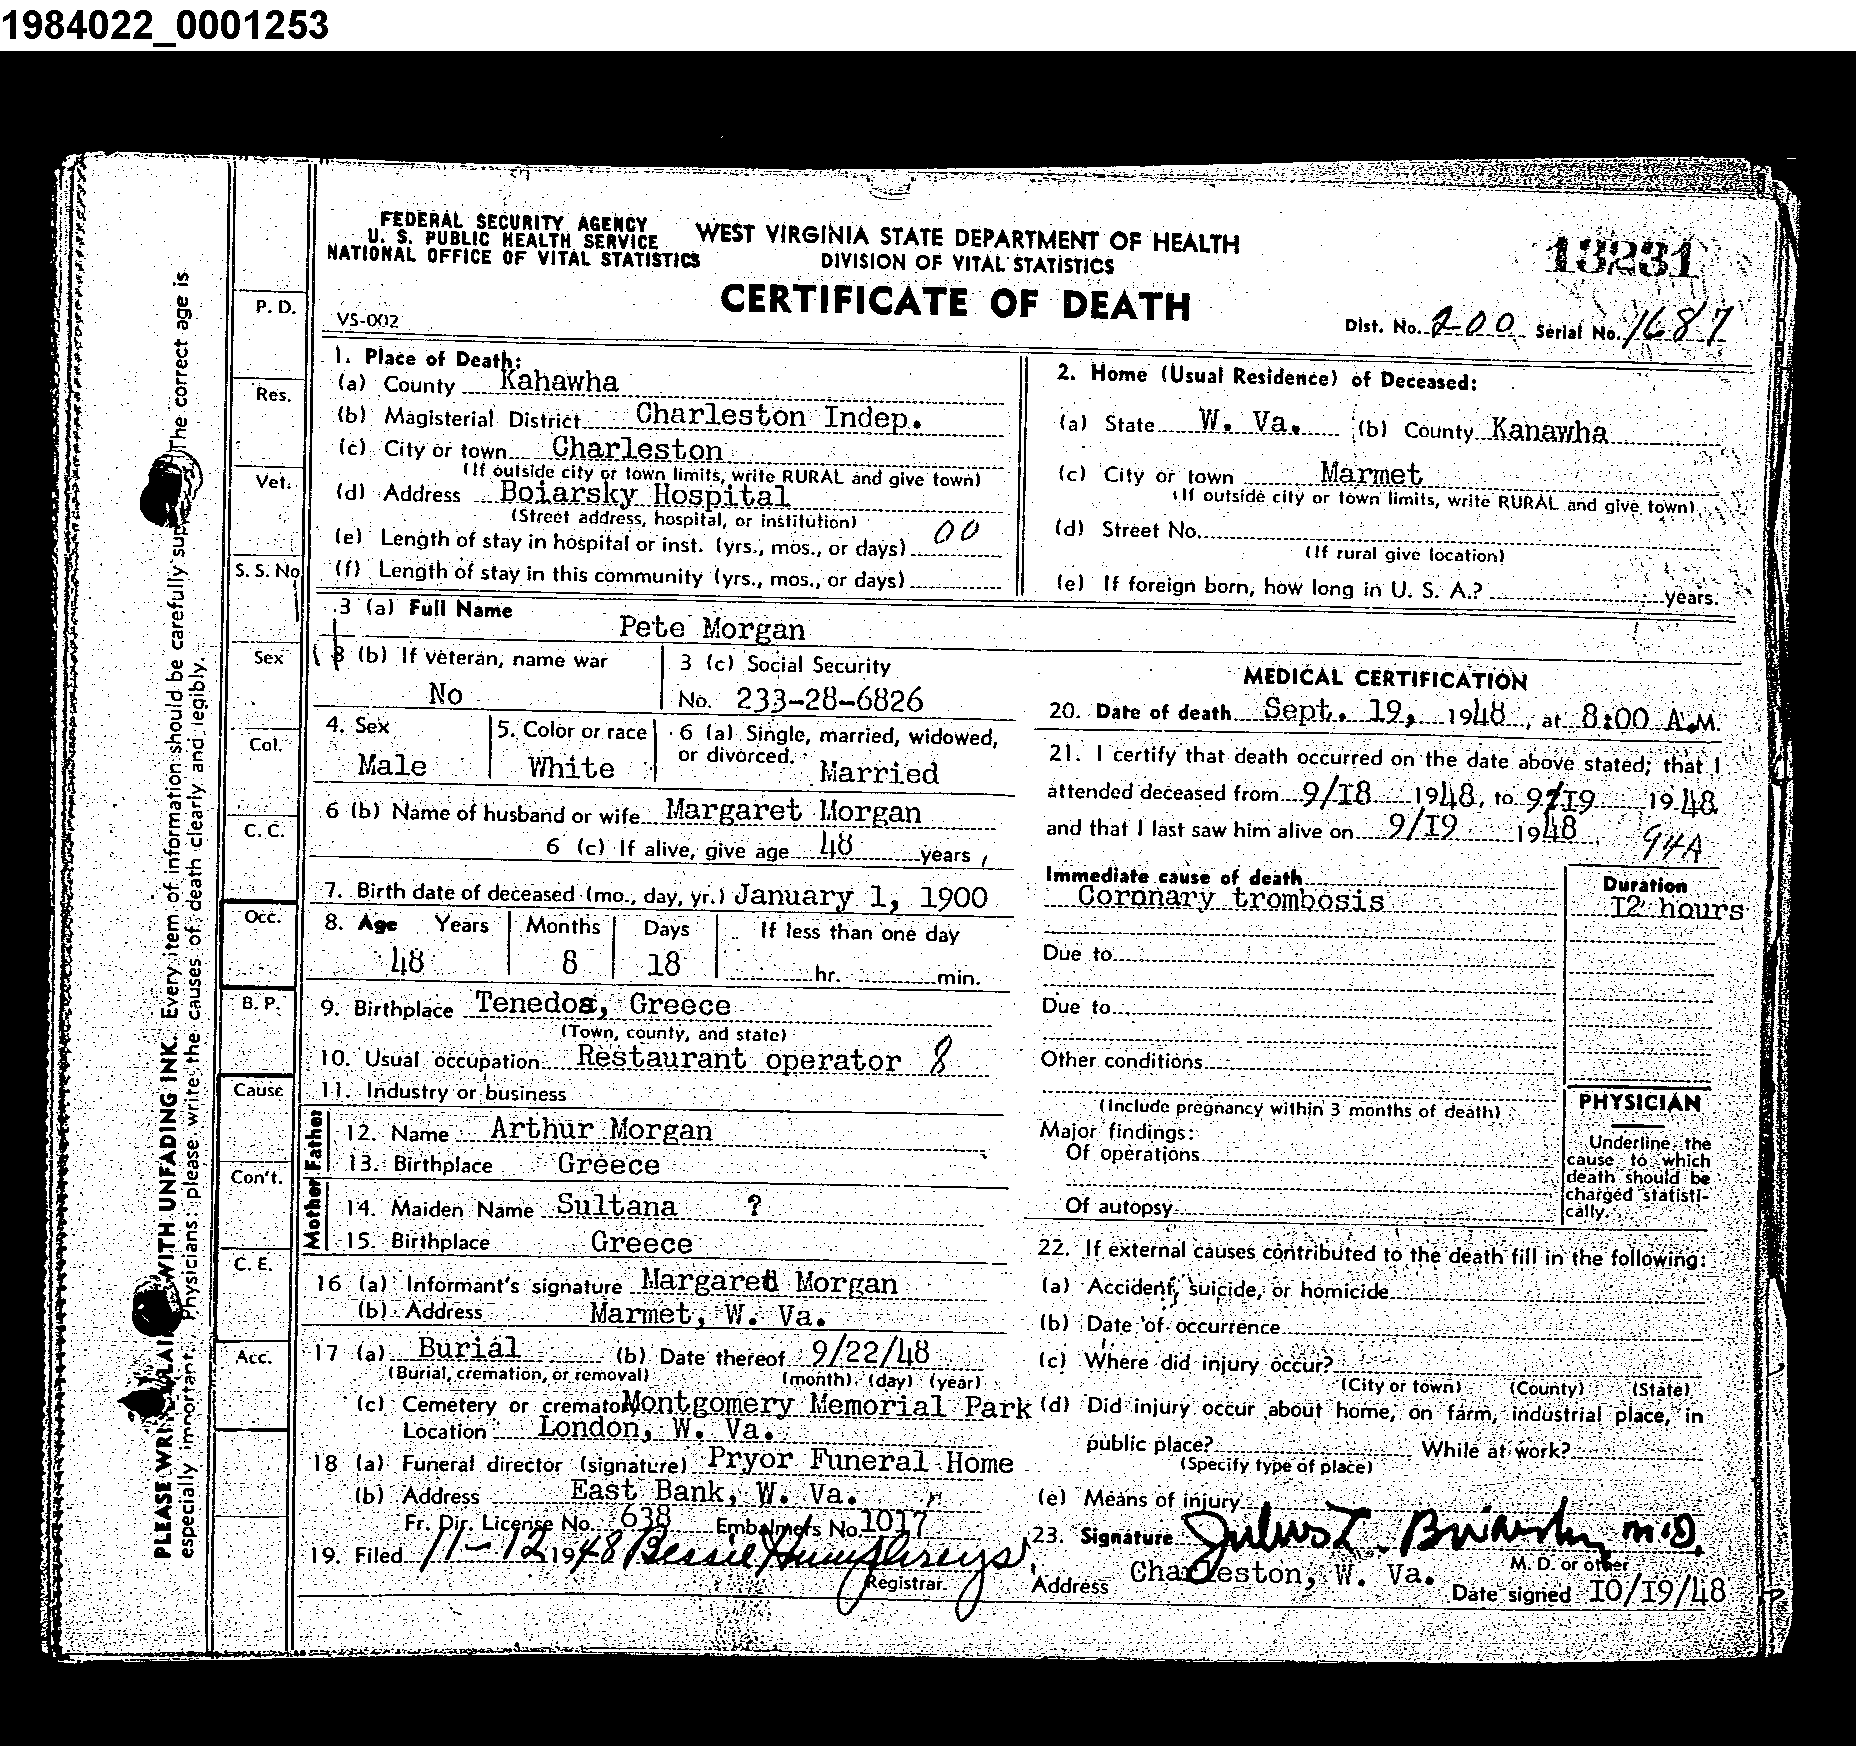 1984022_0001253
FEDERAL SECURITY AGENCY
U. S. PUBLIC HEALTH SERVICE
NATIONAL OFFICE OF VITAL STATISTICS
WEST VIRGINIA STATE DEPARTMENT OF HEALTH
DIVISION OF VITAL STATISTICS
CERTIFICATE OF DEATH
13231
VS-002
Dist. No. 200 Serial No. 1687
PLEASE WRITE PLAINLY WITH UNFADING INK. Every item of information should be carefully supplied. The correct age is
especially important. Physicians: please write the causes of death clearly and legibly.
P. D.
Res.
Vet.
S. S. No
Sex
Col.
C. C.
Occ.
B. P.
Cause
Con't.
C. E.
Acc.
1. Place of Death:
(a) County Kahawha
(b) Magisterial District Charleston Indep.
(c) City or town Charleston
(If outside city or town limits, write RURAL and give town)
(d) Address Boiarsky Hospital
(Street address, hospital, or institution)
(e) Length of stay in hospital or inst. (yrs., mos., or days) 00
(f) Length of stay in this community (yrs., mos., or days)
2. Home (Usual Residence) of Deceased:
(a) State W. Va. (b) County Kanawha
(c) City or town Marmet
(If outside city or town limits, write RURAL and give town)
(d) Street No.
(If rural give location)
(e) If foreign born, how long in U. S. A.? years.
3 (a) Full Name
Pete Morgan
3 (b) If veteran, name war
No
3 (c) Social Security
No. 233-28-6826
4. Sex
Male
5. Color or race
White
6 (a) Single, married, widowed,
or divorced. Married
6 (b) Name of husband or wife Margaret Morgan
6 (c) If alive, give age 48 years
7. Birth date of deceased (mo., day, yr.) January 1, 1900
8. Age Years Months Days If less than one day
48 8 18 hr. min.
9. Birthplace Tenedos, Greece
(Town, county, and state)
10. Usual occupation Restaurant operator 8
11. Industry or business
Father
12. Name Arthur Morgan
13. Birthplace Greece
Mother
14. Maiden Name Sultana ?
15. Birthplace Greece
16 (a) Informant's signature Margaret Morgan
(b) Address Marmet, W. Va.
17 (a) Burial (b) Date thereof 9/22/48
(Burial, cremation, or removal) (month) (day) (year)
(c) Cemetery or cremato Montgomery Memorial Park
Location London, W. Va.
18 (a) Funeral director (signature) Pryor Funeral Home
(b) Address East Bank, W. Va.
Fr. Dir. License No. 638 Embalmers No. 1017
19. Filed 11-12 1948 Bessie Humphreys
Registrar.
MEDICAL CERTIFICATION
20. Date of death Sept. 19, 1948, at 8:00 A.M.
21. I certify that death occurred on the date above stated; that I
attended deceased from 9/18 1948, to 9/19 1948
and that I last saw him alive on 9/19 1948
94A
Immediate cause of death
Coronary trombosis
Duration
12 hours
Due to
Due to
Other conditions
(Include pregnancy within 3 months of death)
Major findings:
Of operations
Of autopsy
PHYSICIAN
Underline the
cause to which
death should be
charged statisti-
cally.
22. If external causes contributed to the death fill in the following:
(a) Accident, suicide, or homicide
(b) Date of occurrence
(c) Where did injury occur?
(City or town) (County) (State)
(d) Did injury occur about home, on farm, industrial place, in
public place? While at work?
(Specify type of place)
(e) Means of injury
23. Signature Julius L. Boiarsky M.D.
M. D. or other
Address Charleston, W. Va. Date signed 10/19/48